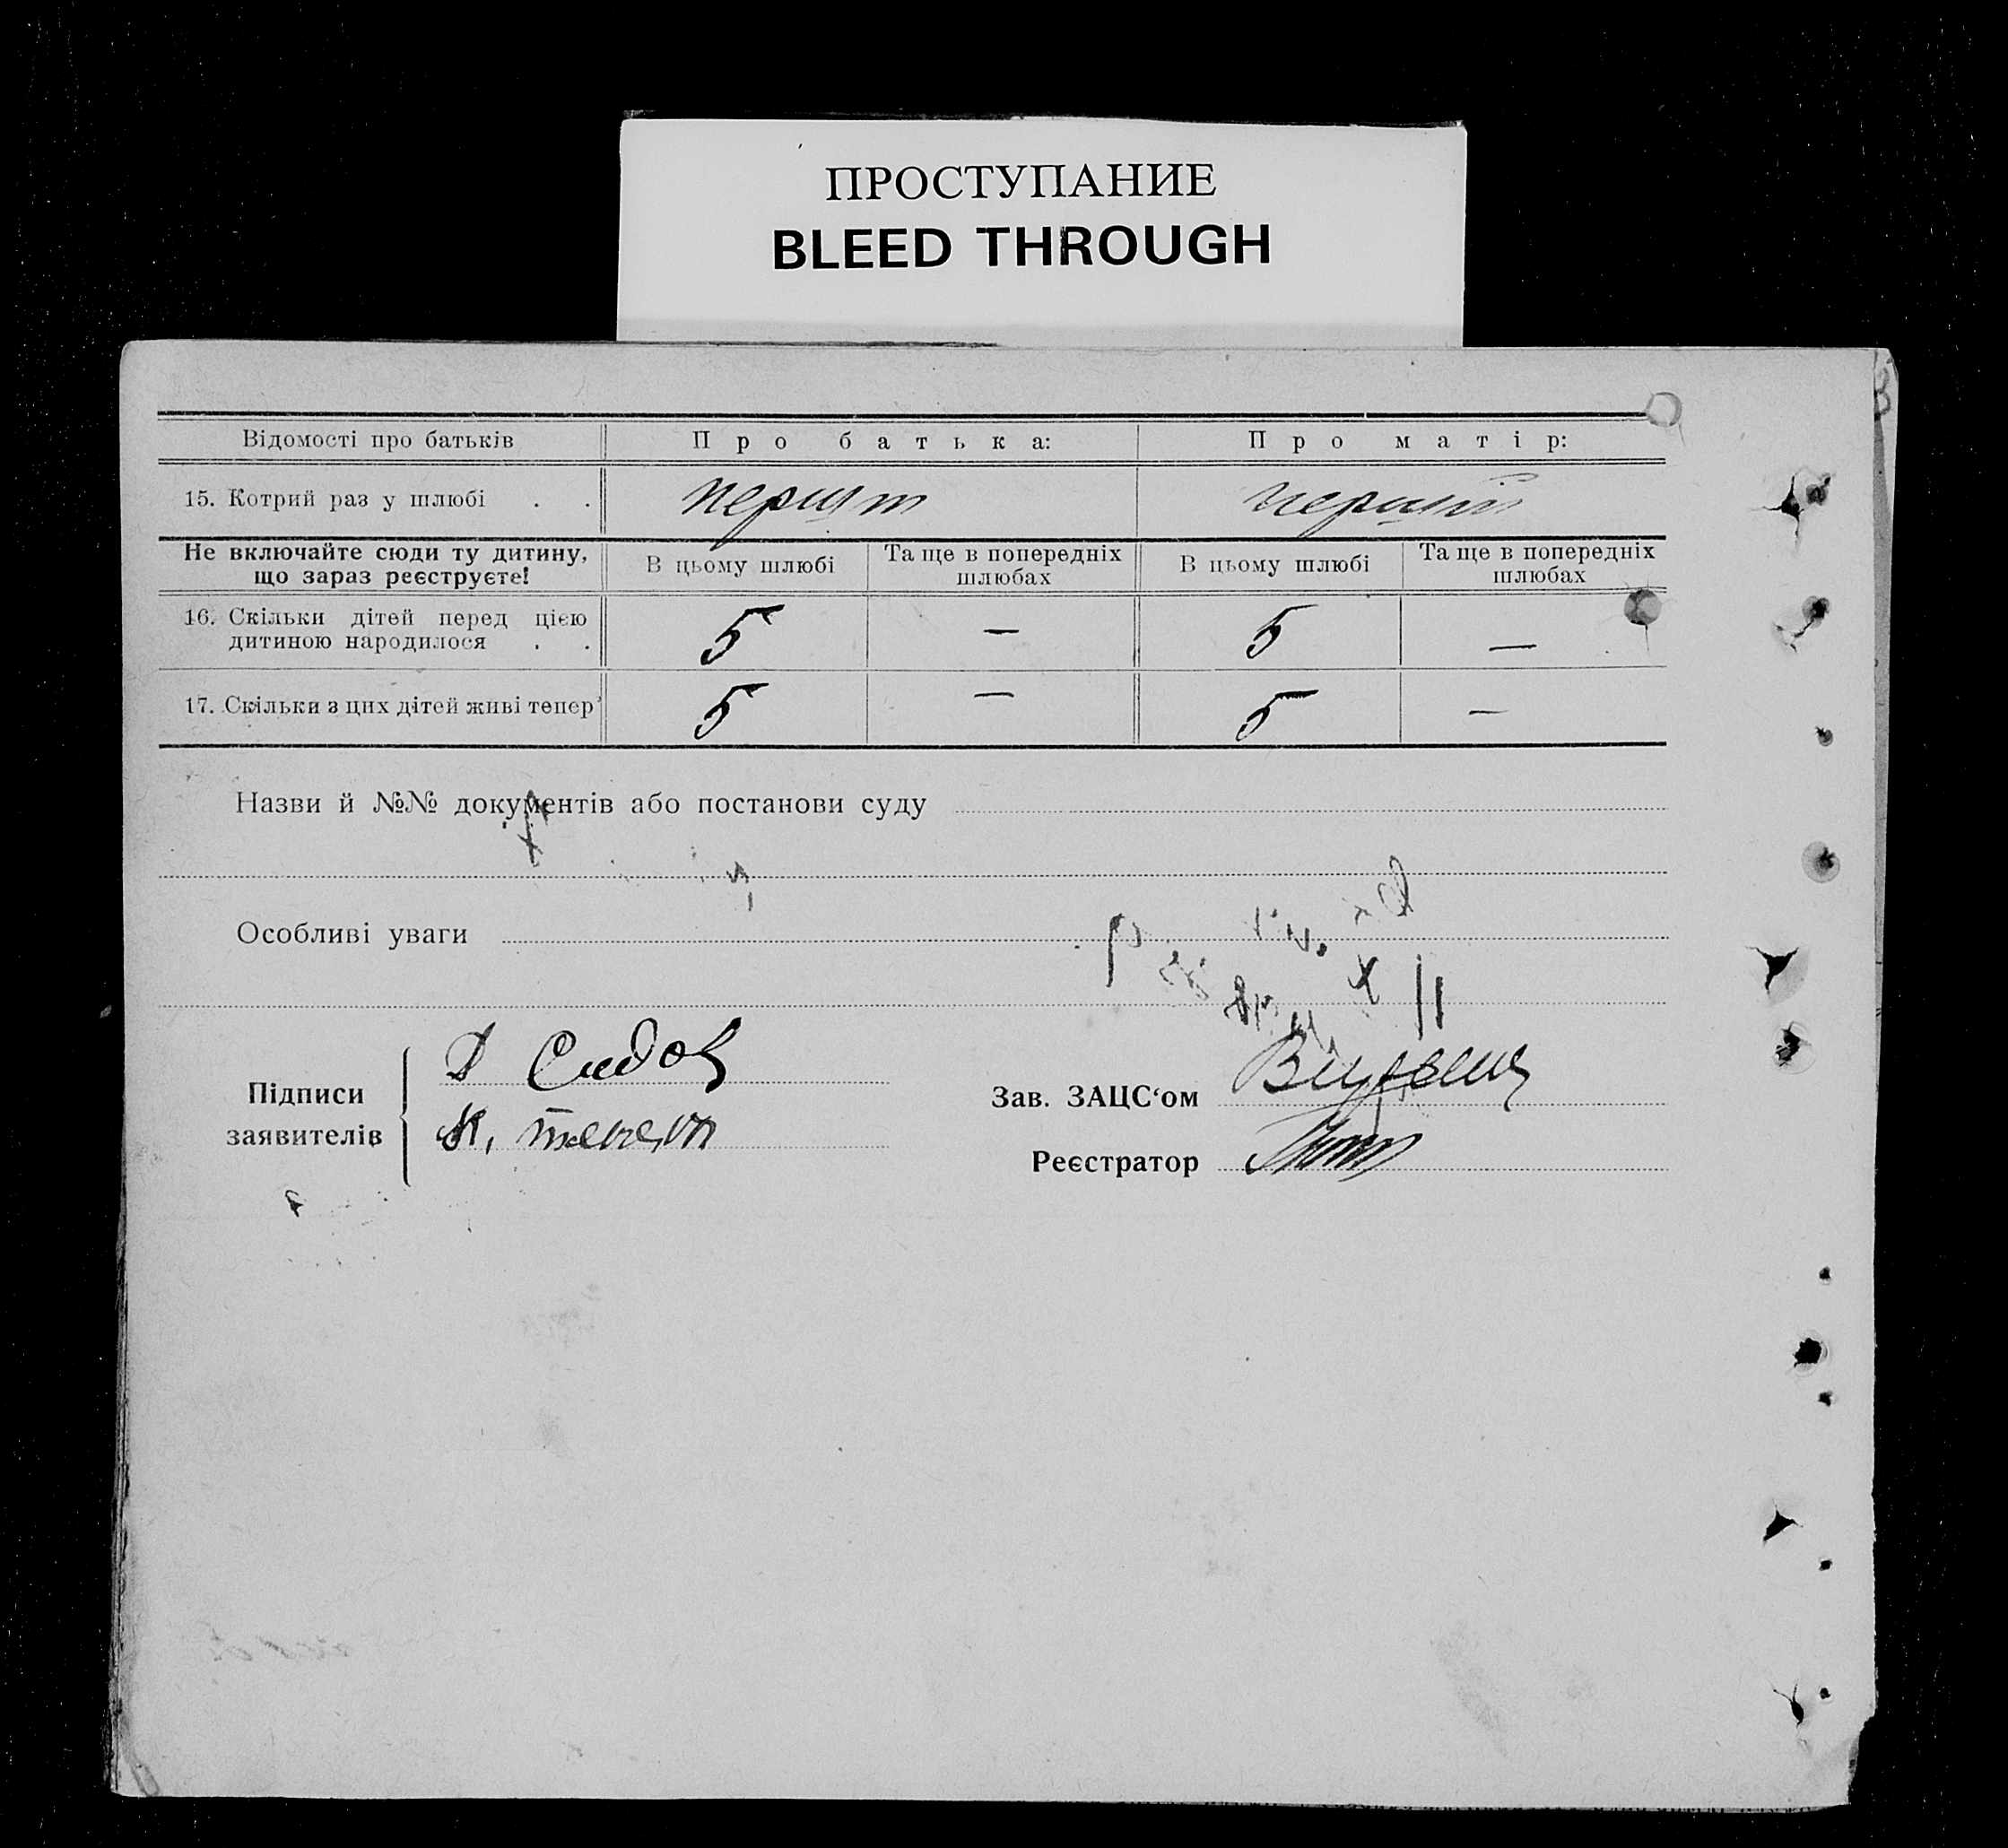 ПРОСТУПАНИЕ
BLEED THROUGH
Відомості про батьків Про батька: Про матір:
15. Котрий раз у шлюбі . . перший
Не включайте сюди ту дитину, що зараз реєструєте! В цьому шлюбі Та ще в попередніх шлюбах В цьому шлюбі Та ще в попередніх шлюбах
16. Скільки дітей перед цією дитиною народилося . . 5 — 5 —
17. Скільки з цих дітей живі тепер 5 — 5 —
Назви й №№ документів або постанови суду
Особливі уваги
Підписи заявителів
Д Сидор
К.
Зав. ЗАЦС‘ом
Реєстратор